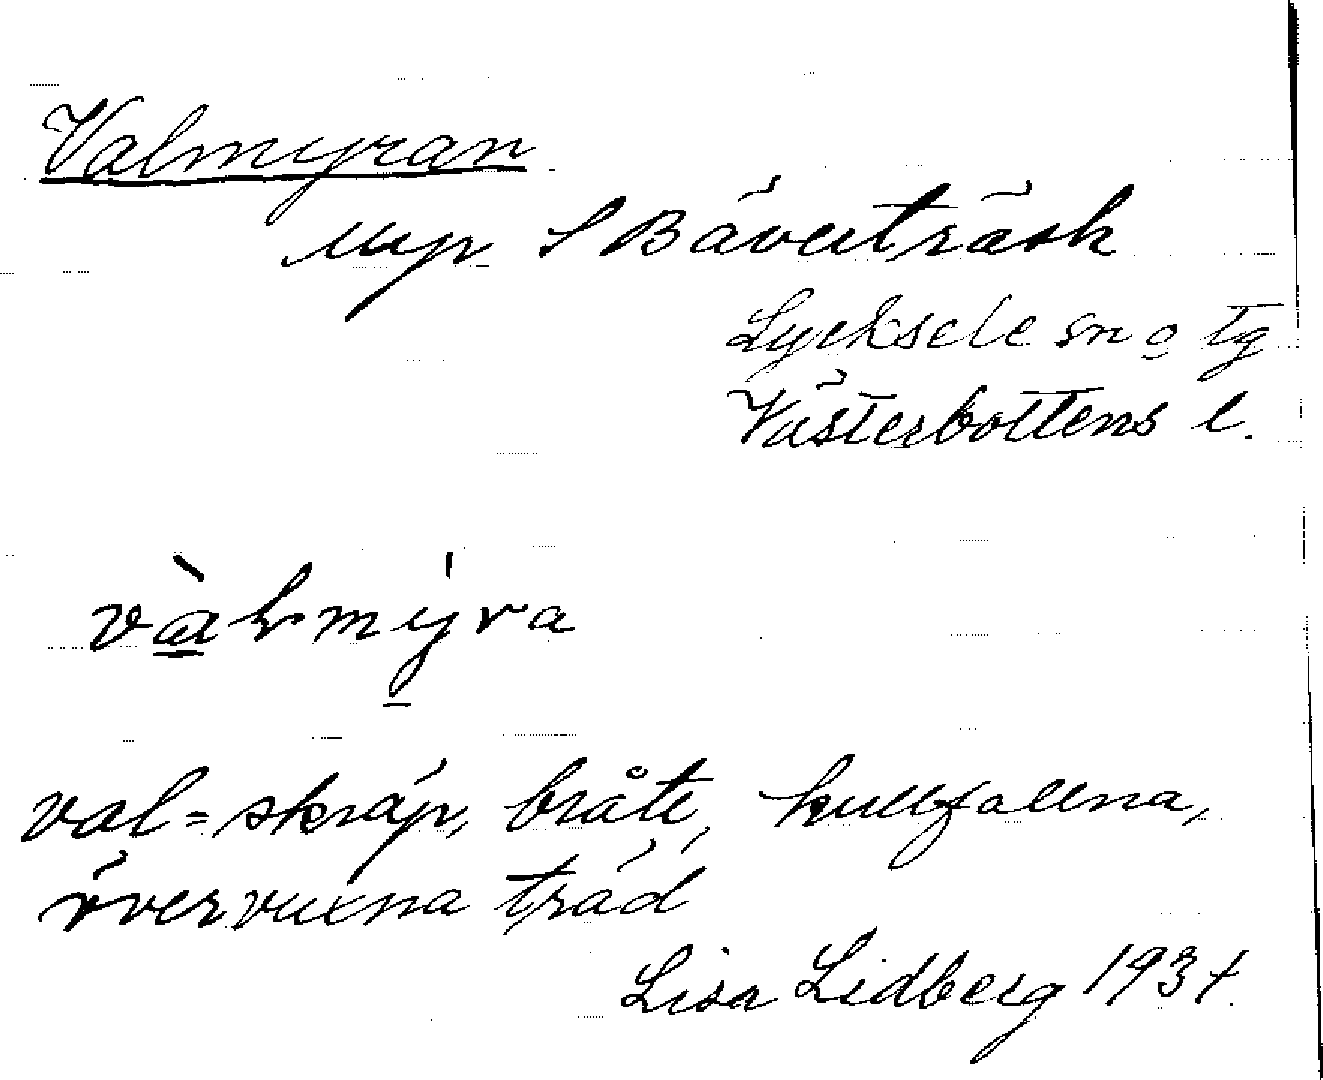 Valmyran
myr S Bäverträsk
Lycksele sn o tg
Västerbottens l.
val = skräp, bråte, kullfallna,
övervuxna träd
Lisa Lidberg 1931.